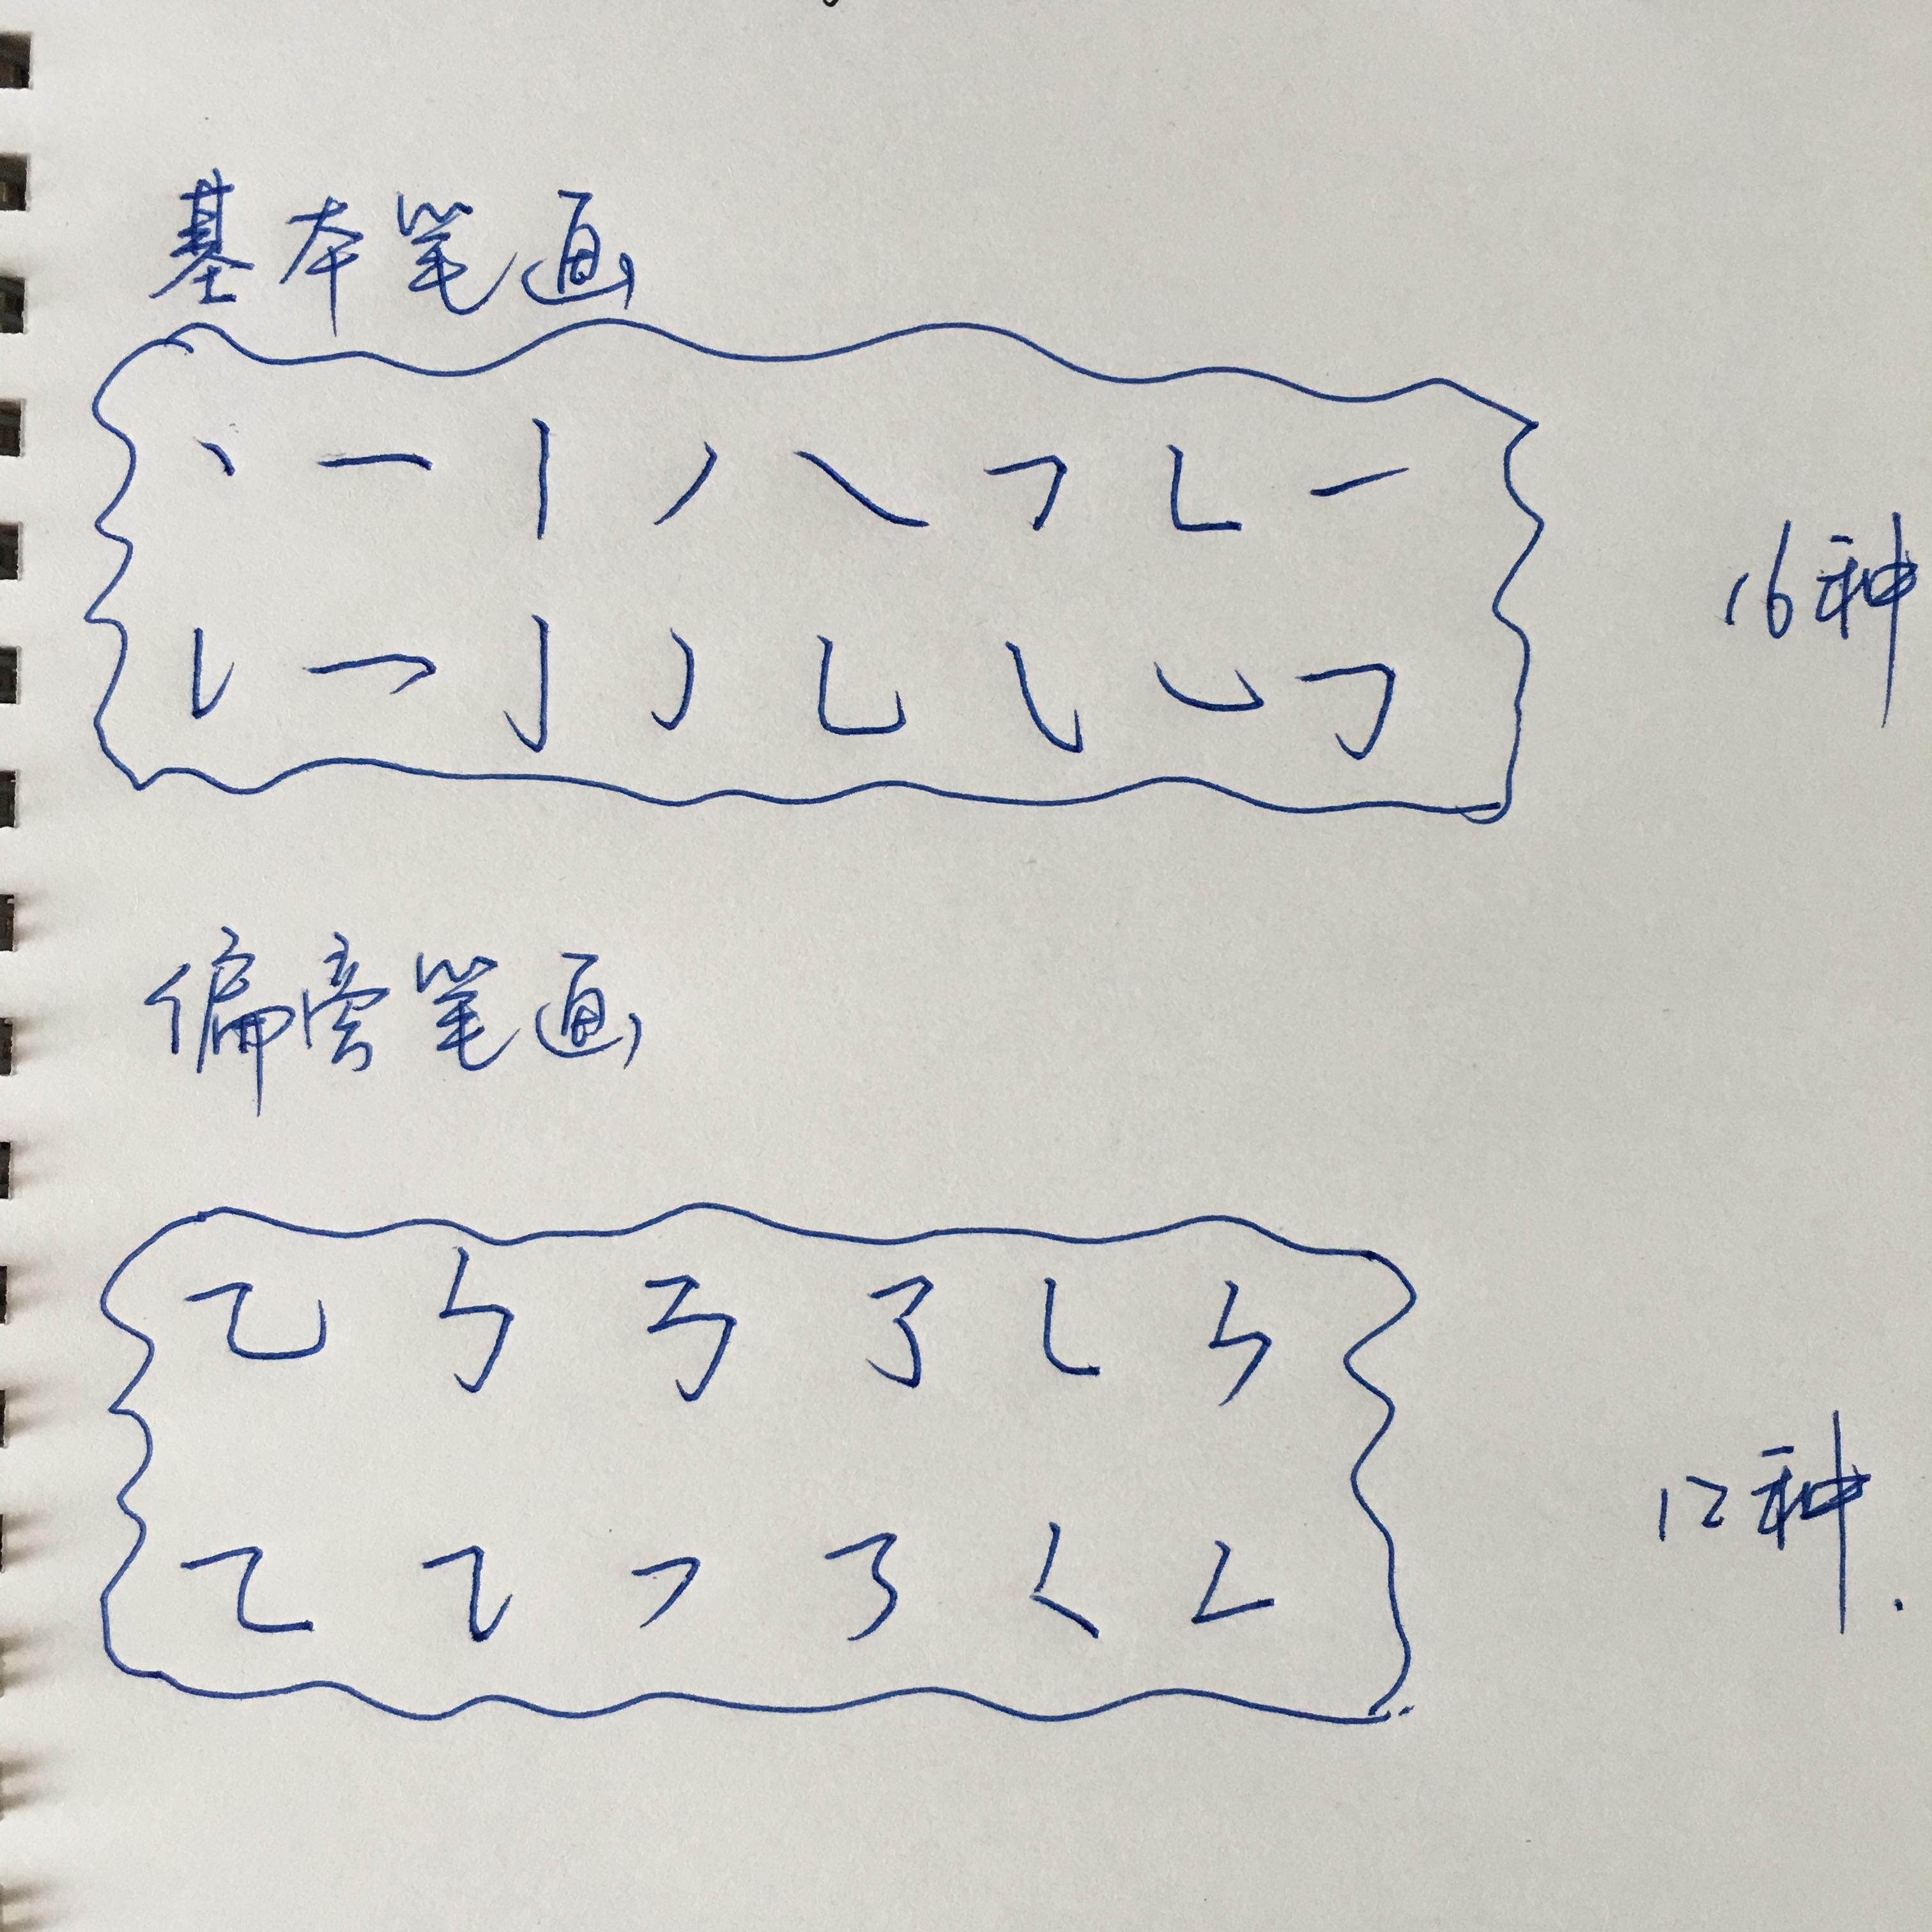 基本笔画
丶 一 丨 丿 ㇏ ㇕ ㇗ ㇀
16种
㇙ ㇖ 亅 ㇓ 乚 ㇂ ㇃ ㇆
偏旁笔画
㇈ ㇉ ㇡ ㇌ ㇄ ㇞
12种.
㇍ ㇊ ㇇ ㇋ ㇛ ㇜